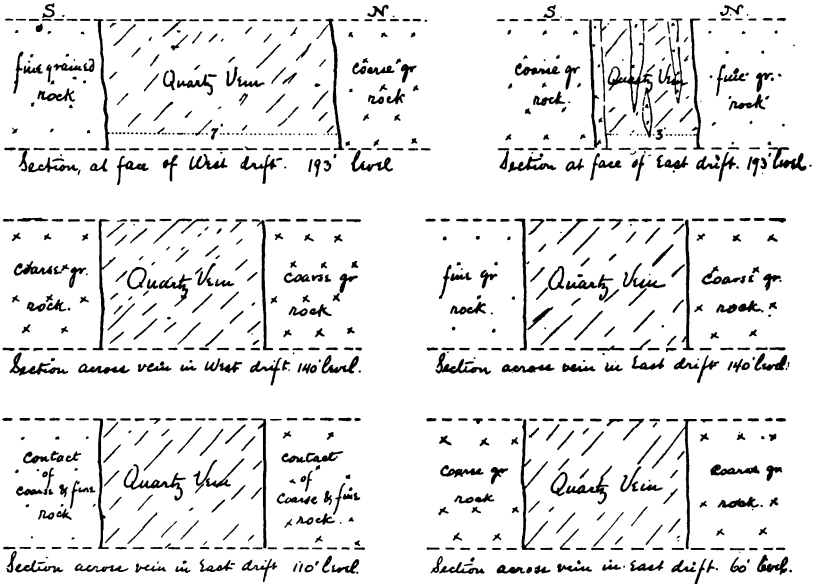 S. N.
fine grained
rock
Quartz Vein
coarse gr
rock
7'
Section, at face of West drift. 193' level
S. N.
coarse gr
rock.
Quartz Vein
fine gr.
rock
3'
Section at face of East drift. 193' level.
coarse gr.
rock.
Quartz Vein
coarse gr
rock
Section across vein in West drift. 140' level.
fine gr
rock.
Quartz Vein
coarse gr.
rock.
Section across vein in East drift 140' level.
contact
of
coarse & fine
rock
Quartz Vein
contact
of
coarse & fine
rock.
Section across vein in East drift 110' level.
coarse gr
rock
Quartz Vein
coarse gr
rock.
Section across vein in East drift. 60' level.